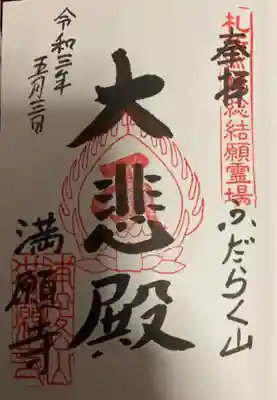 奉拝
札 総結願霊場
ふだらく山
大悲殿
満願寺
令和三年
五月三日